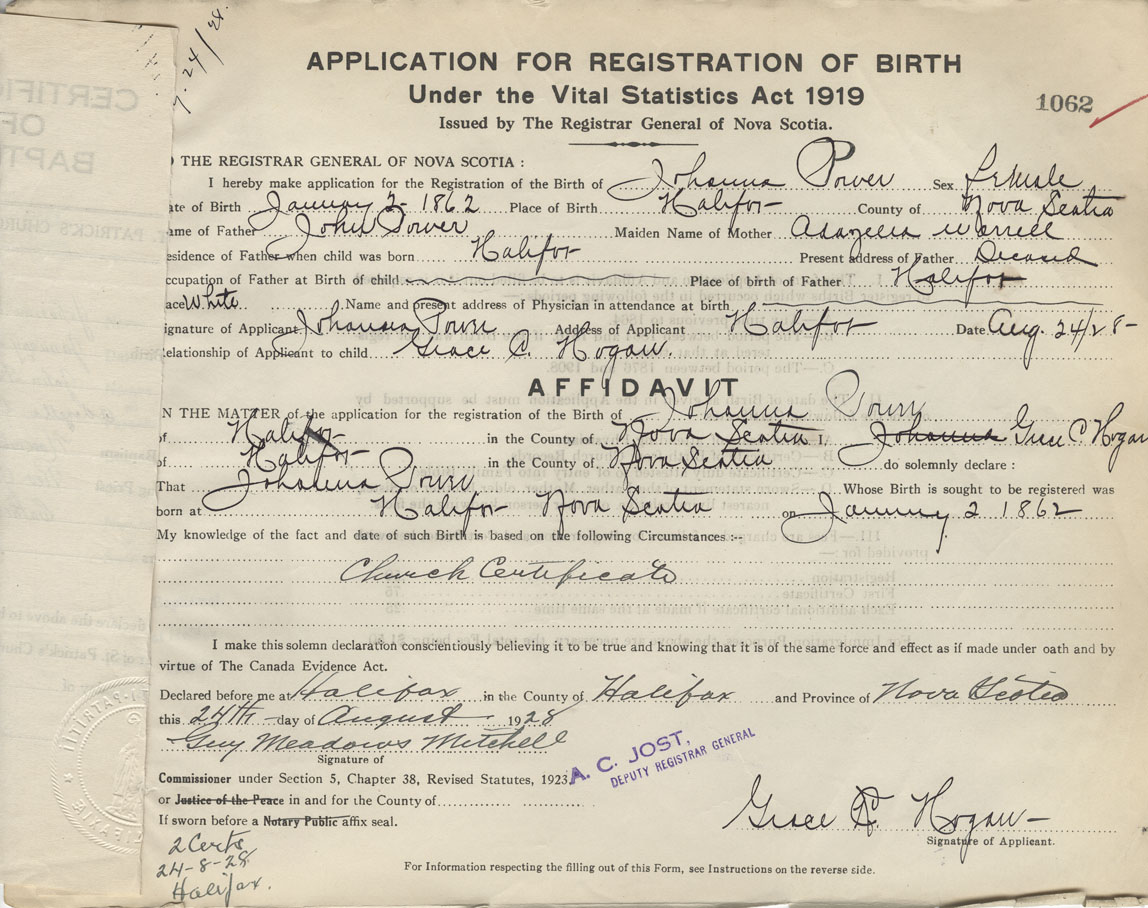 7. 24/28.
APPLICATION FOR REGISTRATION OF BIRTH
Under the Vital Statistics Act 1919
1062
Issued by The Registrar General of Nova Scotia.
O THE REGISTRAR GENERAL OF NOVA SCOTIA :
I hereby make application for the Registration of the Birth of Johanna Power Sex Female
ate of Birth January 2- 1862 Place of Birth Halifax County of Nova Scotia
ame of Father John Power Maiden Name of Mother
esidence of Father when child was born Halifax Present address of Father Deceased
ccupation of Father at Birth of child Place of birth of Father Halifax
ace White Name and present address of Physician in attendance at birth
ignature of Applicant Johanna Power Address of Applicant Halifax Date Aug. 24/28-
elationship of Applicant to child Grace C. Hogan.
AFFIDAVIT
IN THE MATTER of the application for the registration of the Birth of Johanna Power
of Halifax in the County of Nova Scotia I, Johanna Grace C Hogan
of Halifax in the County of Nova Scotia do solemnly declare :
That Johanna Power Whose Birth is sought to be registered was
born at Halifax Nova Scotia on January 2 1862
My knowledge of the fact and date of such Birth is based on the following Circumstances :--
Church Certificate
I make this solemn declaration conscientiously believing it to be true and knowing that it is of the same force and effect as if made under oath and by
virtue of The Canada Evidence Act.
Declared before me at Halifax in the County of Halifax and Province of Nova Scotia
this 24th day of August 1928
Guy Meadows Mitchell
Signature of
A. C. JOST,
DEPUTY REGISTRAR GENERAL
Commissioner under Section 5, Chapter 38, Revised Statutes, 1923.
or Justice of the Peace in and for the County of
If sworn before a Notary Public affix seal.
Grace C. Hogan-
Signature of Applicant.
2 Certs
24-8-28
Halifax.
For Information respecting the filling out of this Form, see Instructions on the reverse side.